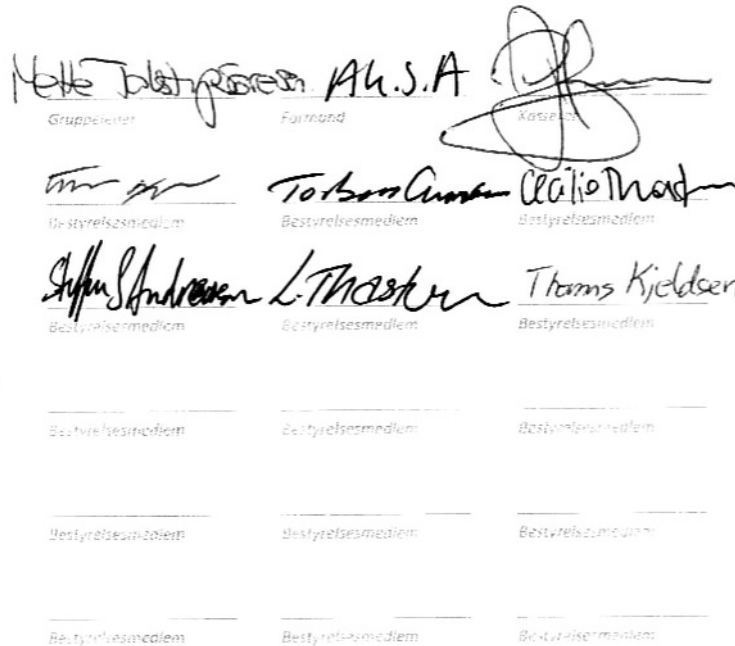 Mette A.K.S.A
Gruppeleder Formand Kasserer
Torben Cecilie
Bestyrelsesmedlem Bestyrelsesmedlem Bestyrelsesmedlem
Steffen S Andreasen L. Thastum Thoms Kjeldsen
Bestyrelsesmedlem Bestyrelsesmedlem Bestyrelsesmedlem
Bestyrelsesmedlem Bestyrelsesmedlem Bestyrelsesmedlem
Bestyrelsesmedlem Bestyrelsesmedlem Bestyrelsesmedlem
Bestyrelsesmedlem Bestyrelsesmedlem Bestyrelsesmedlem